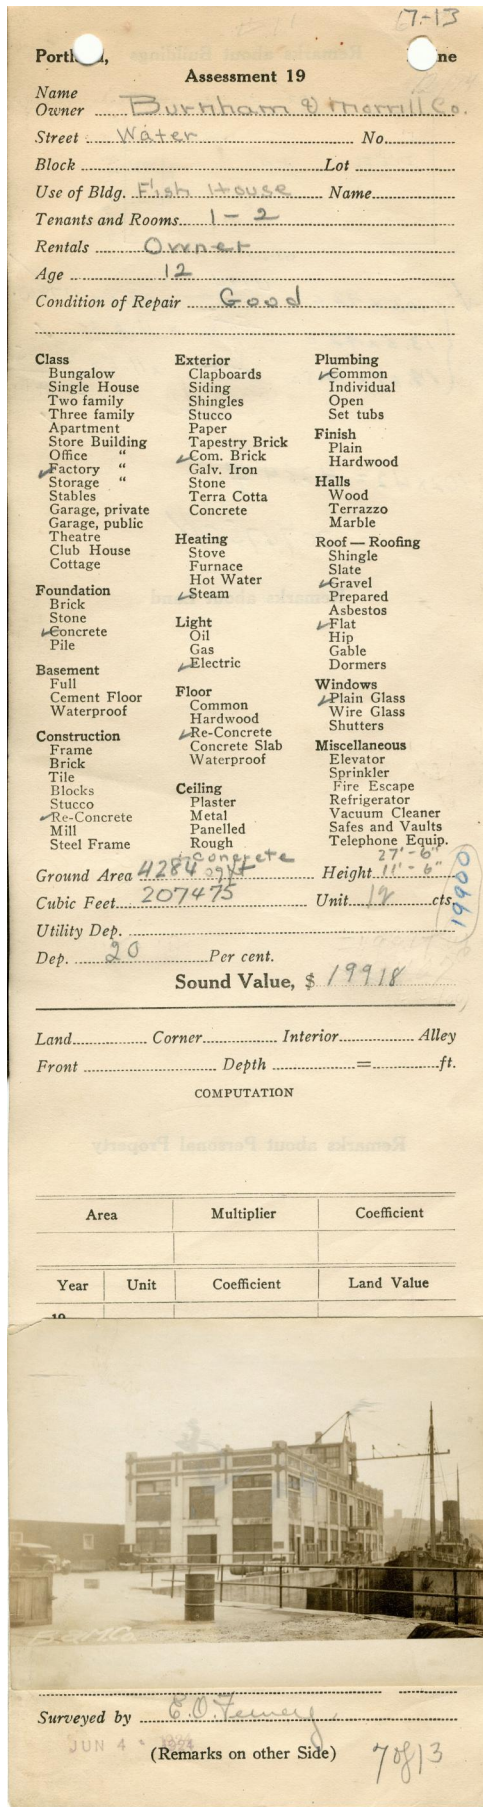 17-13
Portl d, ne
Assessment 19
Name
Owner Burnham & Morrill Co.
Street Water No.
Block Lot
Use of Bldg. Fish House Name
Tenants and Rooms 1 - 2
Rentals Owner
Age 12
Condition of Repair Good
Class
Bungalow
Single House
Two family
Three family
Apartment
Store Building
Office "
✓Factory "
Storage "
Stables
Garage, private
Garage, public
Theatre
Club House
Cottage
Foundation
Brick
Stone
✓Concrete
Pile
Basement
Full
Cement Floor
Waterproof
Construction
Frame
Brick
Tile
Blocks
Stucco
✓Re-Concrete
Mill
Steel Frame
Exterior
Clapboards
Siding
Shingles
Stucco
Paper
Tapestry Brick
✓Com. Brick
Galv. Iron
Stone
Terra Cotta
Concrete
Heating
Stove
Furnace
Hot Water
✓Steam
Light
Oil
Gas
✓Electric
Floor
Common
Hardwood
✓Re-Concrete
Concrete Slab
Waterproof
Ceiling
Plaster
Metal
Panelled
Rough
Concrete
Plumbing
✓Common
Individual
Open
Set tubs
Finish
Plain
Hardwood
Halls
Wood
Terrazzo
Marble
Roof — Roofing
Shingle
Slate
✓Gravel
Prepared
Asbestos
✓Flat
Hip
Gable
Dormers
Windows
✓Plain Glass
Wire Glass
Shutters
Miscellaneous
Elevator
Sprinkler
Fire Escape
Refrigerator
Vacuum Cleaner
Safes and Vaults
Telephone Equip.
27'-6"
Ground Area 4284 Height 11'-6"
Cubic Feet 207475 Unit 12 cts.
19900
Utility Dep.
Dep. 20 Per cent.
Sound Value, $ 19918
Land Corner Interior Alley
Front Depth = ft.
COMPUTATION
Area Multiplier Coefficient
Year Unit Coefficient Land Value
19
B & M Co
Surveyed by E.O.
JUN 4 - 1924
(Remarks on other Side)
7 of 13